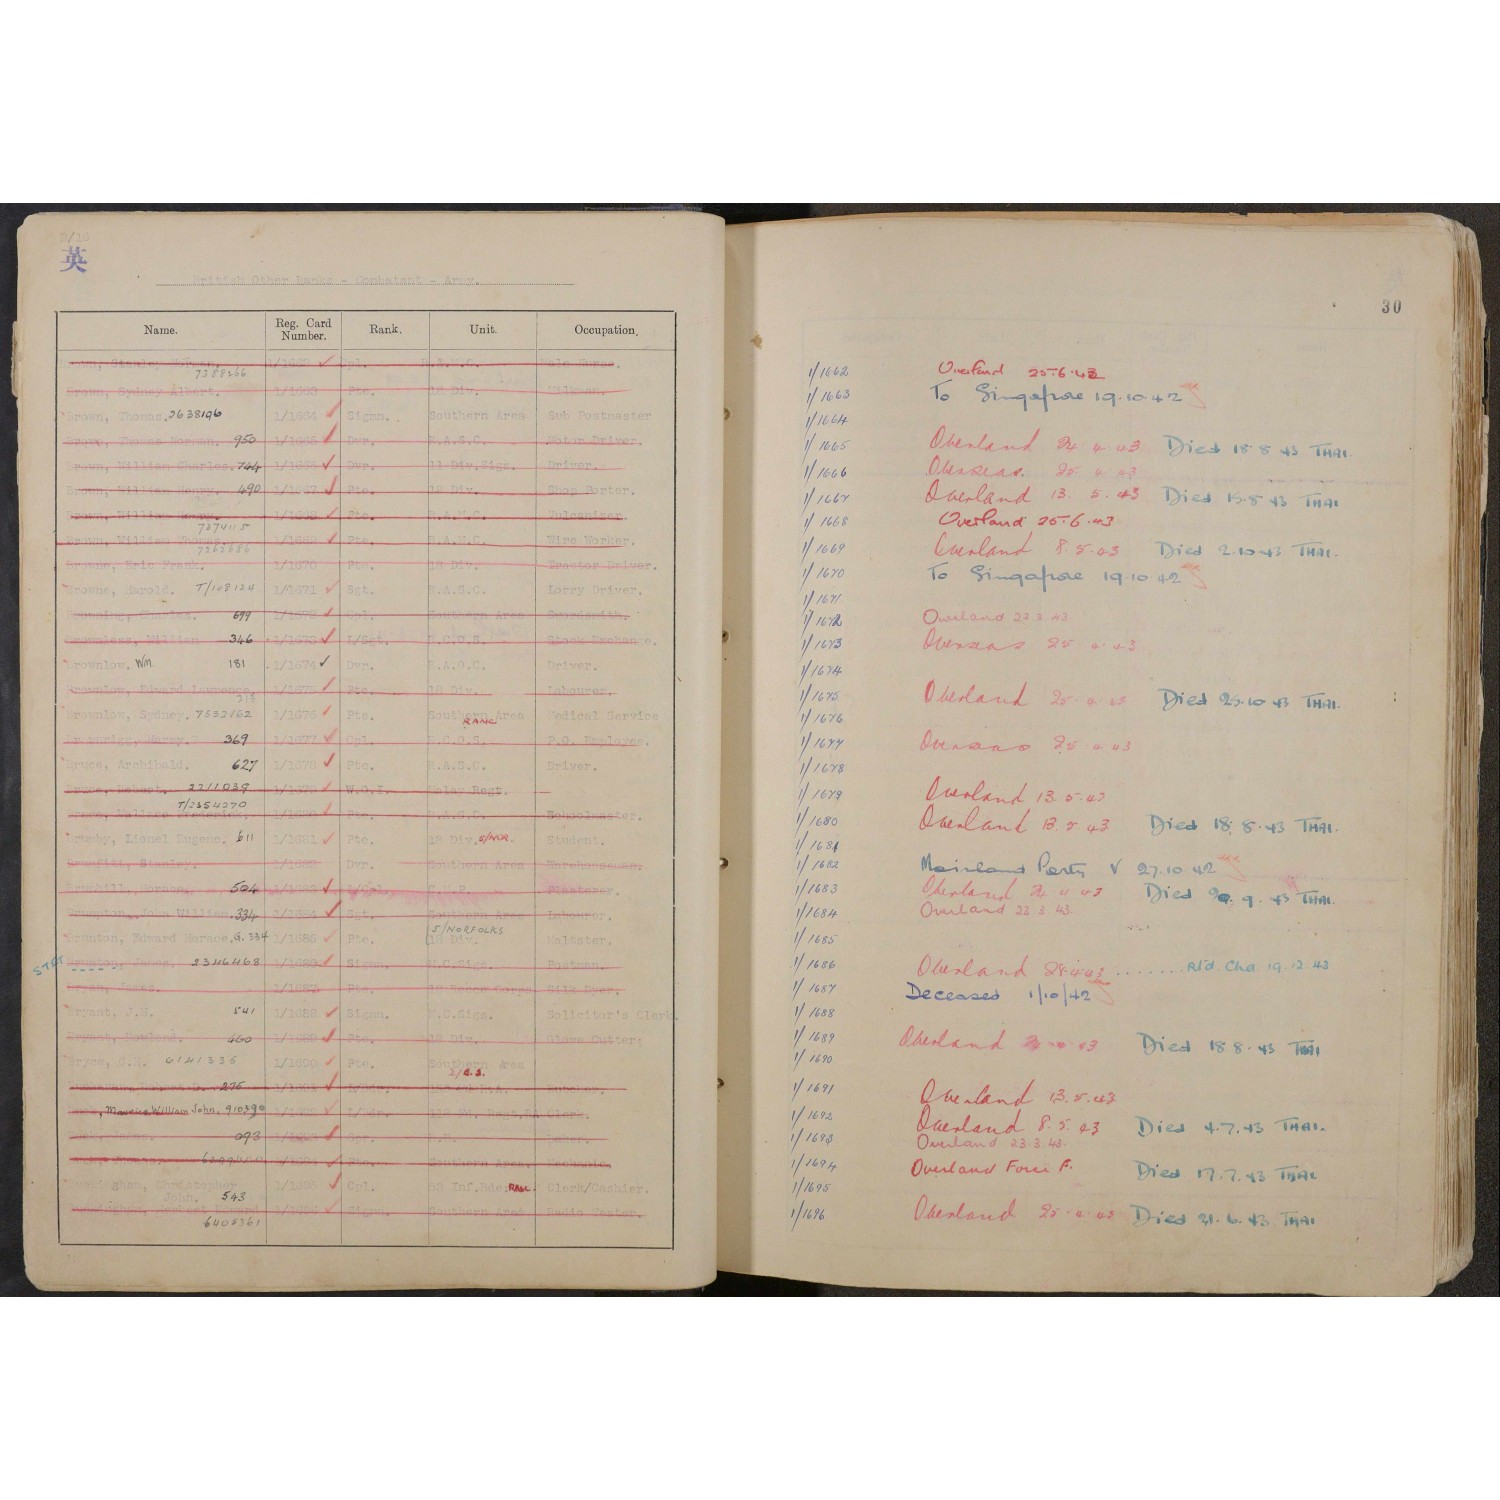 B/18
英
British Other Ranks - Combatant - Army.
Name. Reg. Card Number. Rank. Unit. Occupation.
Stanley 7388266 1/1662 Cpl. R.A.M.C. Male Nurse.
Brown, Sydney Albert. 1/1663 Pte. 18 Div. Milkman.
Brown, Thomas. 2638196 1/1664 Sigmn. Southern Area Sub Postmaster
Brown, Thomas Norman. 950 1/1665 Dvr. R.A.S.C. Motor Driver.
Brown, William Charles. 744 1/1666 Dvr. 11 Div.Sigs. Driver.
Brown, William Henry. 490 1/1667 Pte. 18 Div. Shop Porter.
Brown, William 7274115 1/1668 Pte. R.A.M.C. Vulcaniser.
Brown, William Thomas. 7262686 1/1669 Pte. R.A.M.C. Wire Worker.
Browne, Eric Frank. 1/1670 Pte. 18 Div. Tractor Driver.
Browne, Harold. T/108124 1/1671 Sgt. R.A.S.C. Lorry Driver.
Browning, Charles. 699 1/1672 Cpl. Southern Area Swordsmith.
Brownless, William 346 1/1673 L/Sgt. R.C.O.S. Stock Exchange.
Brownlow. Wm. 181 1/1674 Dvr. R.A.O.C. Driver.
Brownlow, Edward Lawrence. 1/1675 Pte. 18 Div. Labourer.
Brownlow, Sydney. 7532162 1/1676 Pte. Southern Area RAMC Medical Service
Harry. 369 1/1677 Cpl. R.C.O.S. P.O. Employee.
Bruce, Archibald. 627 1/1678 Pte. R.A.S.C. Driver.
Bruce, Robert. 2211039 1/1679 W.O.I. Malay Regt. -
Wallace Frederick. T/2354270 1/1680 Pte. R.A.S.C. Schoolmaster.
Lionel Eugene. 611 1/1681 Pte. 18 Div. 5/NOR. Student.
Stanley. 1/1682 Dvr. Southern Area Warehouseman.
Horace. 504 1/1683 L/Cpl. C.M.P. Plasterer.
John William. 334 1/1684 Sgt. Southern Area Labourer.
Brunton, Edward Horace. G.334 1/1685 Pte. 18 Div. 5/NORFOLKS Maltster.
STET James. 2346468 1/1686 Sigmn. M.C.Sigs. Postman.
James. 1/1687 Silk Dyer.
Bryant, J.H. 541 1/1688 Sigmn. M.C.Sigs. Solicitor's Clerk.
Bryant, Rowland. 460 1/1689 Pte. 18 Div. Glove Cutter.
Bryce, G.R. 6141336 1/1690 Pte. Southern Area
275 1/1691 Butcher.
Maurice William John. 910390 1/1692 Clerk.
093 1/1693
1/1694 Pte. Southern Area. Mechanic.
Christopher John. 543 1/1695 Cpl. 53 Inf.Bde. RAMC Clerk/Cashier.
6405361 1/1696 Sigmn. Southern Area
30
1/1662 Overland 25.6.43
1/1663 To Singapore 19.10.42
1/1664
1/1665 Overland 24 4 43 Died 18.8.43 THAI.
1/1666 Overseas. 25 4 43
1/1667 Overland 13. 5. 43 Died 15.8.43 THAI
1/1668 Overland 25.6.43
1/1669 Overland 8.5.43 Died 2.10.43 THAI.
1/1670 To Singapore 19.10.42
1/1671
1/1672 Overland 23.3.43.
1/1673 Overseas 25 4 43
1/1674
1/1675 Overland 25.4.43 Died 25.10.43 THAI.
1/1676
1/1677 Overseas 25 4 43
1/1678
1/1679 Overland 13.5.43
1/1680 Overland 13.5.43 Died 18.8.43 THAI.
1/1681
1/1682 Mainland Party V 27.10.42
1/1683 Overland 24 4 43 Died 9.43 THAI.
1/1684 Overland 23.3.43.
1/1685
1/1686 Overland 28.4.43 ....... Rtd. Cha. 19.12.43
1/1687 Deceased 1/10/42
1/1688
1/1689 Overland 43 Died 18.8.43 THAI
1/1690
1/1691 Overland 13.5.43
1/1692 Overland 8.5.43 Died 4.7.43 THAI.
1/1693 Overland 23.3.43.
1/1694 Overland Force F. Died 17.7.43 THAI
1/1695
1/1696 Overland 25.4.43 Died 21.6.43 THAI